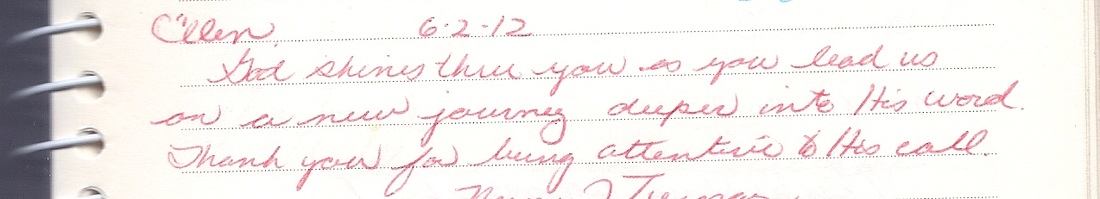 Ellen, 6-2-12
God shines thru you as you lead us
on a new journey deeper into His word.
Thank you for being attentive to His call.